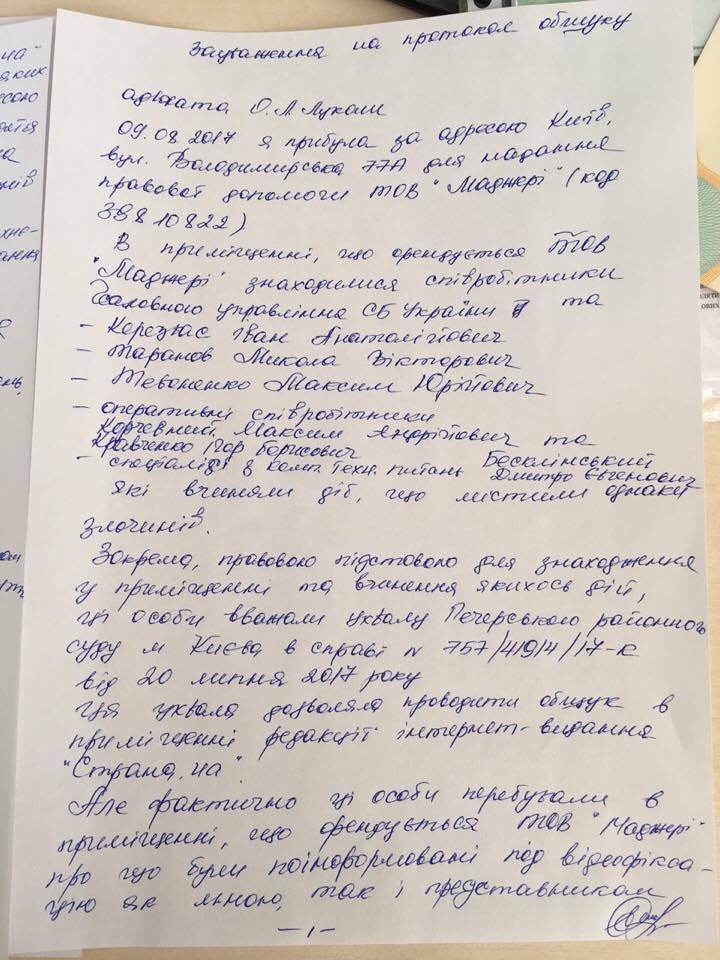 Зауваження на протокол обшуку
адвоката О.Л. Лукаш
09.08.2017 я прибула за адресою Київ,
вул. Володимирська 77А для надання
правової допомоги ТОВ "Маджері" (код
39810822)
В приміщенні, що орендується ТОВ
"Маджері" знаходилися співробітники
Головного управління СБ України та
- Керезвас Іван Анатолійович
- Таранов Микола Вікторович
- Тевоненко Максим Юрійович
- оперативні співробітники
Корчевний Максим Андрійович та
Кравченко Ігор Борисович
- спеціаліст з комп. техн. питань Бесклінський
Дмитро Євгенович
які вчиняли дії, що містили ознаки
злочинів.
Зокрема, правовою підставою для знаходження
у приміщенні та вчинення якихось дій,
ці особи вважали ухвалу Печерського районного
суду м Києва в справі N 757/41914/17-к
від 20 липня 2017 року
Ця ухвала дозволяла проводити обшук в
приміщенні редакції інтернет-видання
"Страна.иа".
Але фактично ці особи перебували в
приміщенні, що орендується ТОВ "Маджері"
про що були поінформовані під відеофікса-
цію як мною, так і представником
- 1 -